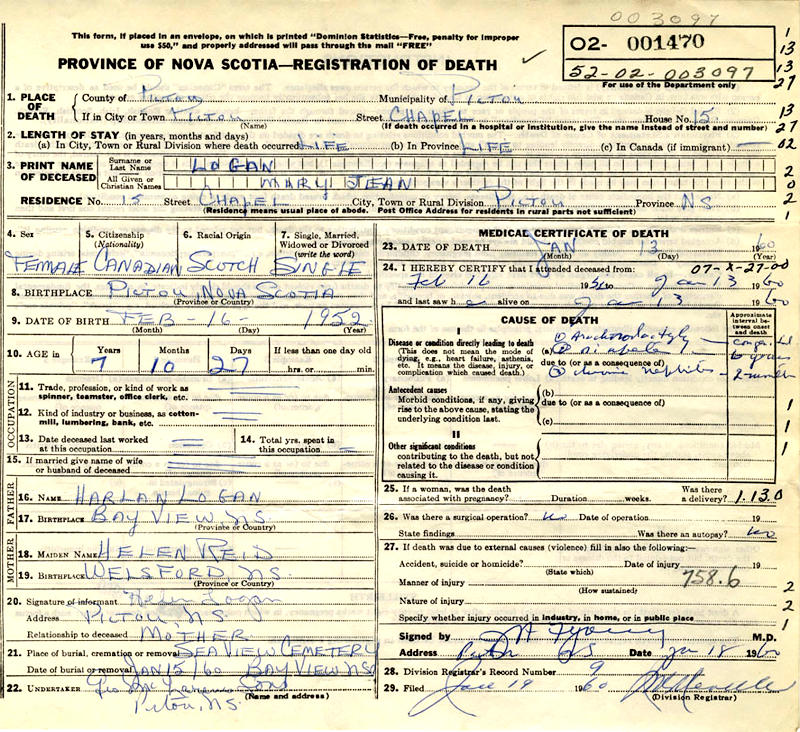 003097
This form, if placed in an envelope, on which is printed "Dominion Statistics—Free, penalty for improper
use $50," and properly addressed will pass through the mail "FREE"
02- 001470
52-02-003097
For use of the Department only
PROVINCE OF NOVA SCOTIA—REGISTRATION OF DEATH
1. PLACE OF DEATH
County of PICTOU Municipality of PICTOU
If in City or Town PICTOU Street CHAPEL House No. 15
(Name) (If death occurred in a hospital or institution, give the name instead of street and number)
2. LENGTH OF STAY (in years, months and days)
(a) In City, Town or Rural Division where death occurred LIFE (b) In Province LIFE (c) In Canada (if immigrant) —
3. PRINT NAME OF DECEASED
Surname or Last Name LOGAN
All Given or Christian Names MARY JEAN
RESIDENCE No. 15 Street CHAPEL City, Town or Rural Division PICTOU Province NS
(Residence means usual place of abode. Post Office Address for residents in rural parts not sufficient)
1
13
13
27
13
27
02
2
0
2
1
4. Sex 5. Citizenship (Nationality) 6. Racial Origin 7. Single, Married, Widowed or Divorced (write the word)
FEMALE CANADIAN SCOTCH SINGLE
8. BIRTHPLACE PICTOU, NOVA SCOTIA
(Province or Country)
9. DATE OF BIRTH FEB - 16 - 1952
(Month) (Day) (Year)
10. AGE in Years Months Days If less than one day old
7 10 27 hrs. or min.
OCCUPATION
11. Trade, profession, or kind of work as spinner, teamster, office clerk, etc.
12. Kind of industry or business, as cotton-mill, lumbering, bank, etc.
13. Date deceased last worked at this occupation
14. Total yrs. spent in this occupation
15. If married give name of wife or husband of deceased
FATHER
16. NAME HARLAN LOGAN
17. BIRTHPLACE BAY VIEW, NS.
(Province or Country)
MOTHER
18. MAIDEN NAME HELEN REID
19. BIRTHPLACE WELSFORD, NS.
(Province or Country)
20. Signature of informant Helen Logan
Address PICTOU, NS
Relationship to deceased MOTHER
21. Place of burial, cremation or removal SEAVIEW CEMETERY
Date of burial or removal JAN 15/60 BAY VIEW NS
22. UNDERTAKER Sons
(Name and address)
Pictou, NS
MEDICAL CERTIFICATE OF DEATH
23. DATE OF DEATH JAN 13 1960
(Month) (Day)
24. I HEREBY CERTIFY that I attended deceased from: 07-X-27-00
Feb 16 to Jan 13 1960
and last saw h e alive on Jan 13 1960
CAUSE OF DEATH
Approximate interval between onset and death
I
Disease or condition directly leading to death
(This does not mean the mode of dying, e.g., heart failure, asthenia, etc. It means the disease, injury, or complication which caused death.)
① Arachnodactyly —
(a) ②
due to (or as a consequence of) 
③ chronic nephritis —
Antecedent causes
Morbid conditions, if any, giving rise to the above cause, stating the underlying condition last.
(b)
due to (or as a consequence of)
(c)
II
Other significant conditions
contributing to the death, but not related to the disease or condition causing it.
1
1
1
25. If a woman, was the death associated with pregnancy? Duration weeks. Was there a delivery? 1.13.0
26. Was there a surgical operation? no Date of operation 19
State findings Was there an autopsy? no
27. If death was due to external causes (violence) fill in also the following:—
Accident, suicide or homicide? Date of injury 19
(State which)
Manner of injury 758.6
(How sustained)
Nature of injury
Specify whether injury occurred in industry, in home, or in public place
2
2
1
Signed by M.D.
Address NS Date Jan 18 1960
28. Division Registrar's Record Number 9
29. Filed Jan 19 1960
(Division Registrar)